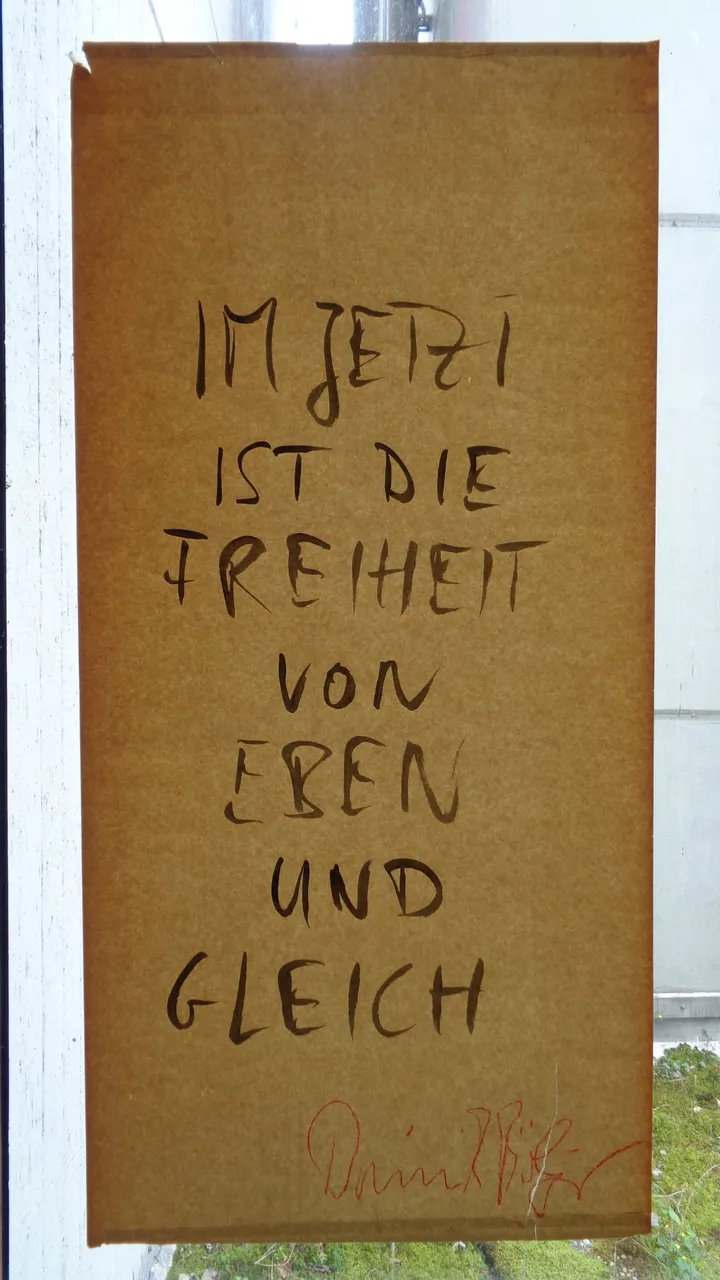 IM JETZT
IST DIE
FREIHEIT
VON
EBEN
UND
GLEICH